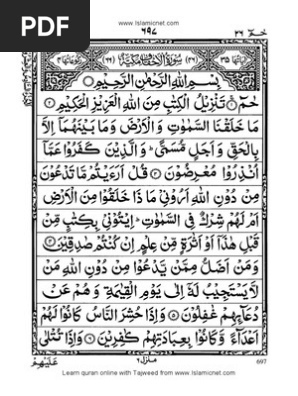 PDF
www.Islamicnet.com
حٰمٓ ٢٦
٦٩٧
سُوْرَةُ الْاَحْقَافِ مَكِّيَّةٌ
بِسْمِ اللّٰهِ الرَّحْمٰنِ الرَّحِيْمِ
حٰمٓ ۚ تَنْزِيْلُ الْكِتٰبِ مِنَ اللّٰهِ الْعَزِيْزِ الْحَكِيْمِ
مَا خَلَقْنَا السَّمٰوٰتِ وَ الْاَرْضَ وَمَا بَيْنَهُمَاۤ اِلَّا
بِالْحَقِّ وَ اَجَلٍ مُّسَمًّى ؕ وَ الَّذِيْنَ كَفَرُوْا عَمَّاۤ
اُنْذِرُوْا مُعْرِضُوْنَ قُلْ اَرَءَيْتُمْ مَّا تَدْعُوْنَ
مِنْ دُوْنِ اللّٰهِ اَرُوْنِيْ مَا ذَا خَلَقُوْا مِنَ الْاَرْضِ
اَمْ لَهُمْ شِرْكٌ فِي السَّمٰوٰتِ ؕ اِيْتُوْنِيْ بِكِتٰبٍ مِّنْ
قَبْلِ هٰذَاۤ اَوْ اَثٰرَةٍ مِّنْ عِلْمٍ اِنْ كُنْتُمْ صٰدِقِيْنَ
وَ مَنْ اَضَلُّ مِمَّنْ يَّدْعُوْا مِنْ دُوْنِ اللّٰهِ مَنْ
لَّا يَسْتَجِيْبُ لَهٗۤ اِلٰى يَوْمِ الْقِيٰمَةِ وَ هُمْ عَنْ
دُعَآئِهِمْ غٰفِلُوْنَ وَ اِذَا حُشِرَ النَّاسُ كَانُوْا لَهُمْ
اَعْدَآءً وَّ كَانُوْا بِعِبَادَتِهِمْ كٰفِرِيْنَ وَ اِذَا تُتْلٰى
عَلَيْهِمْ
منزل ٦
697
Learn quran online with Tajweed from www.Islamicnet.com